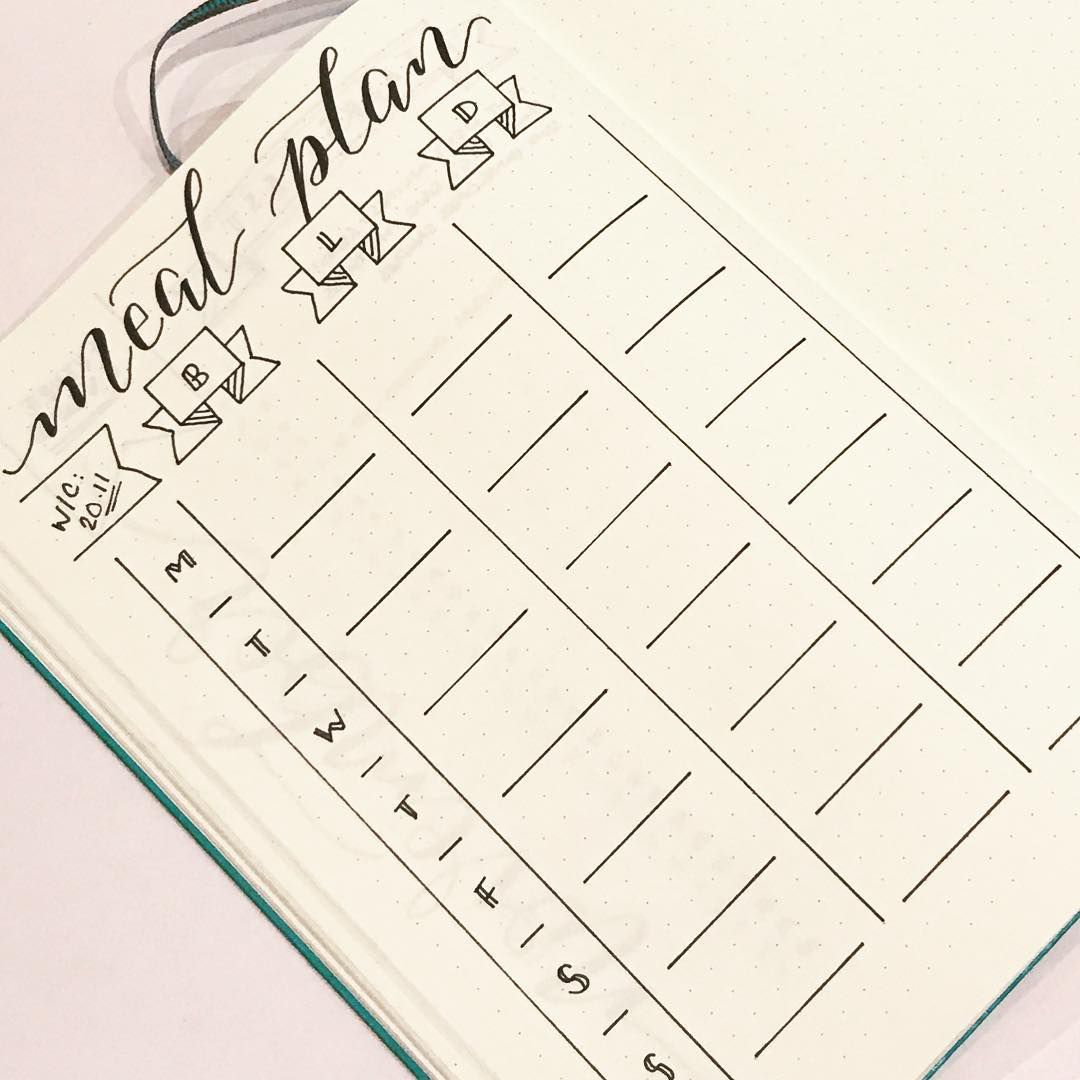 meal plan
W/C:
20.11
B L D
M
T
W
T
F
S
S